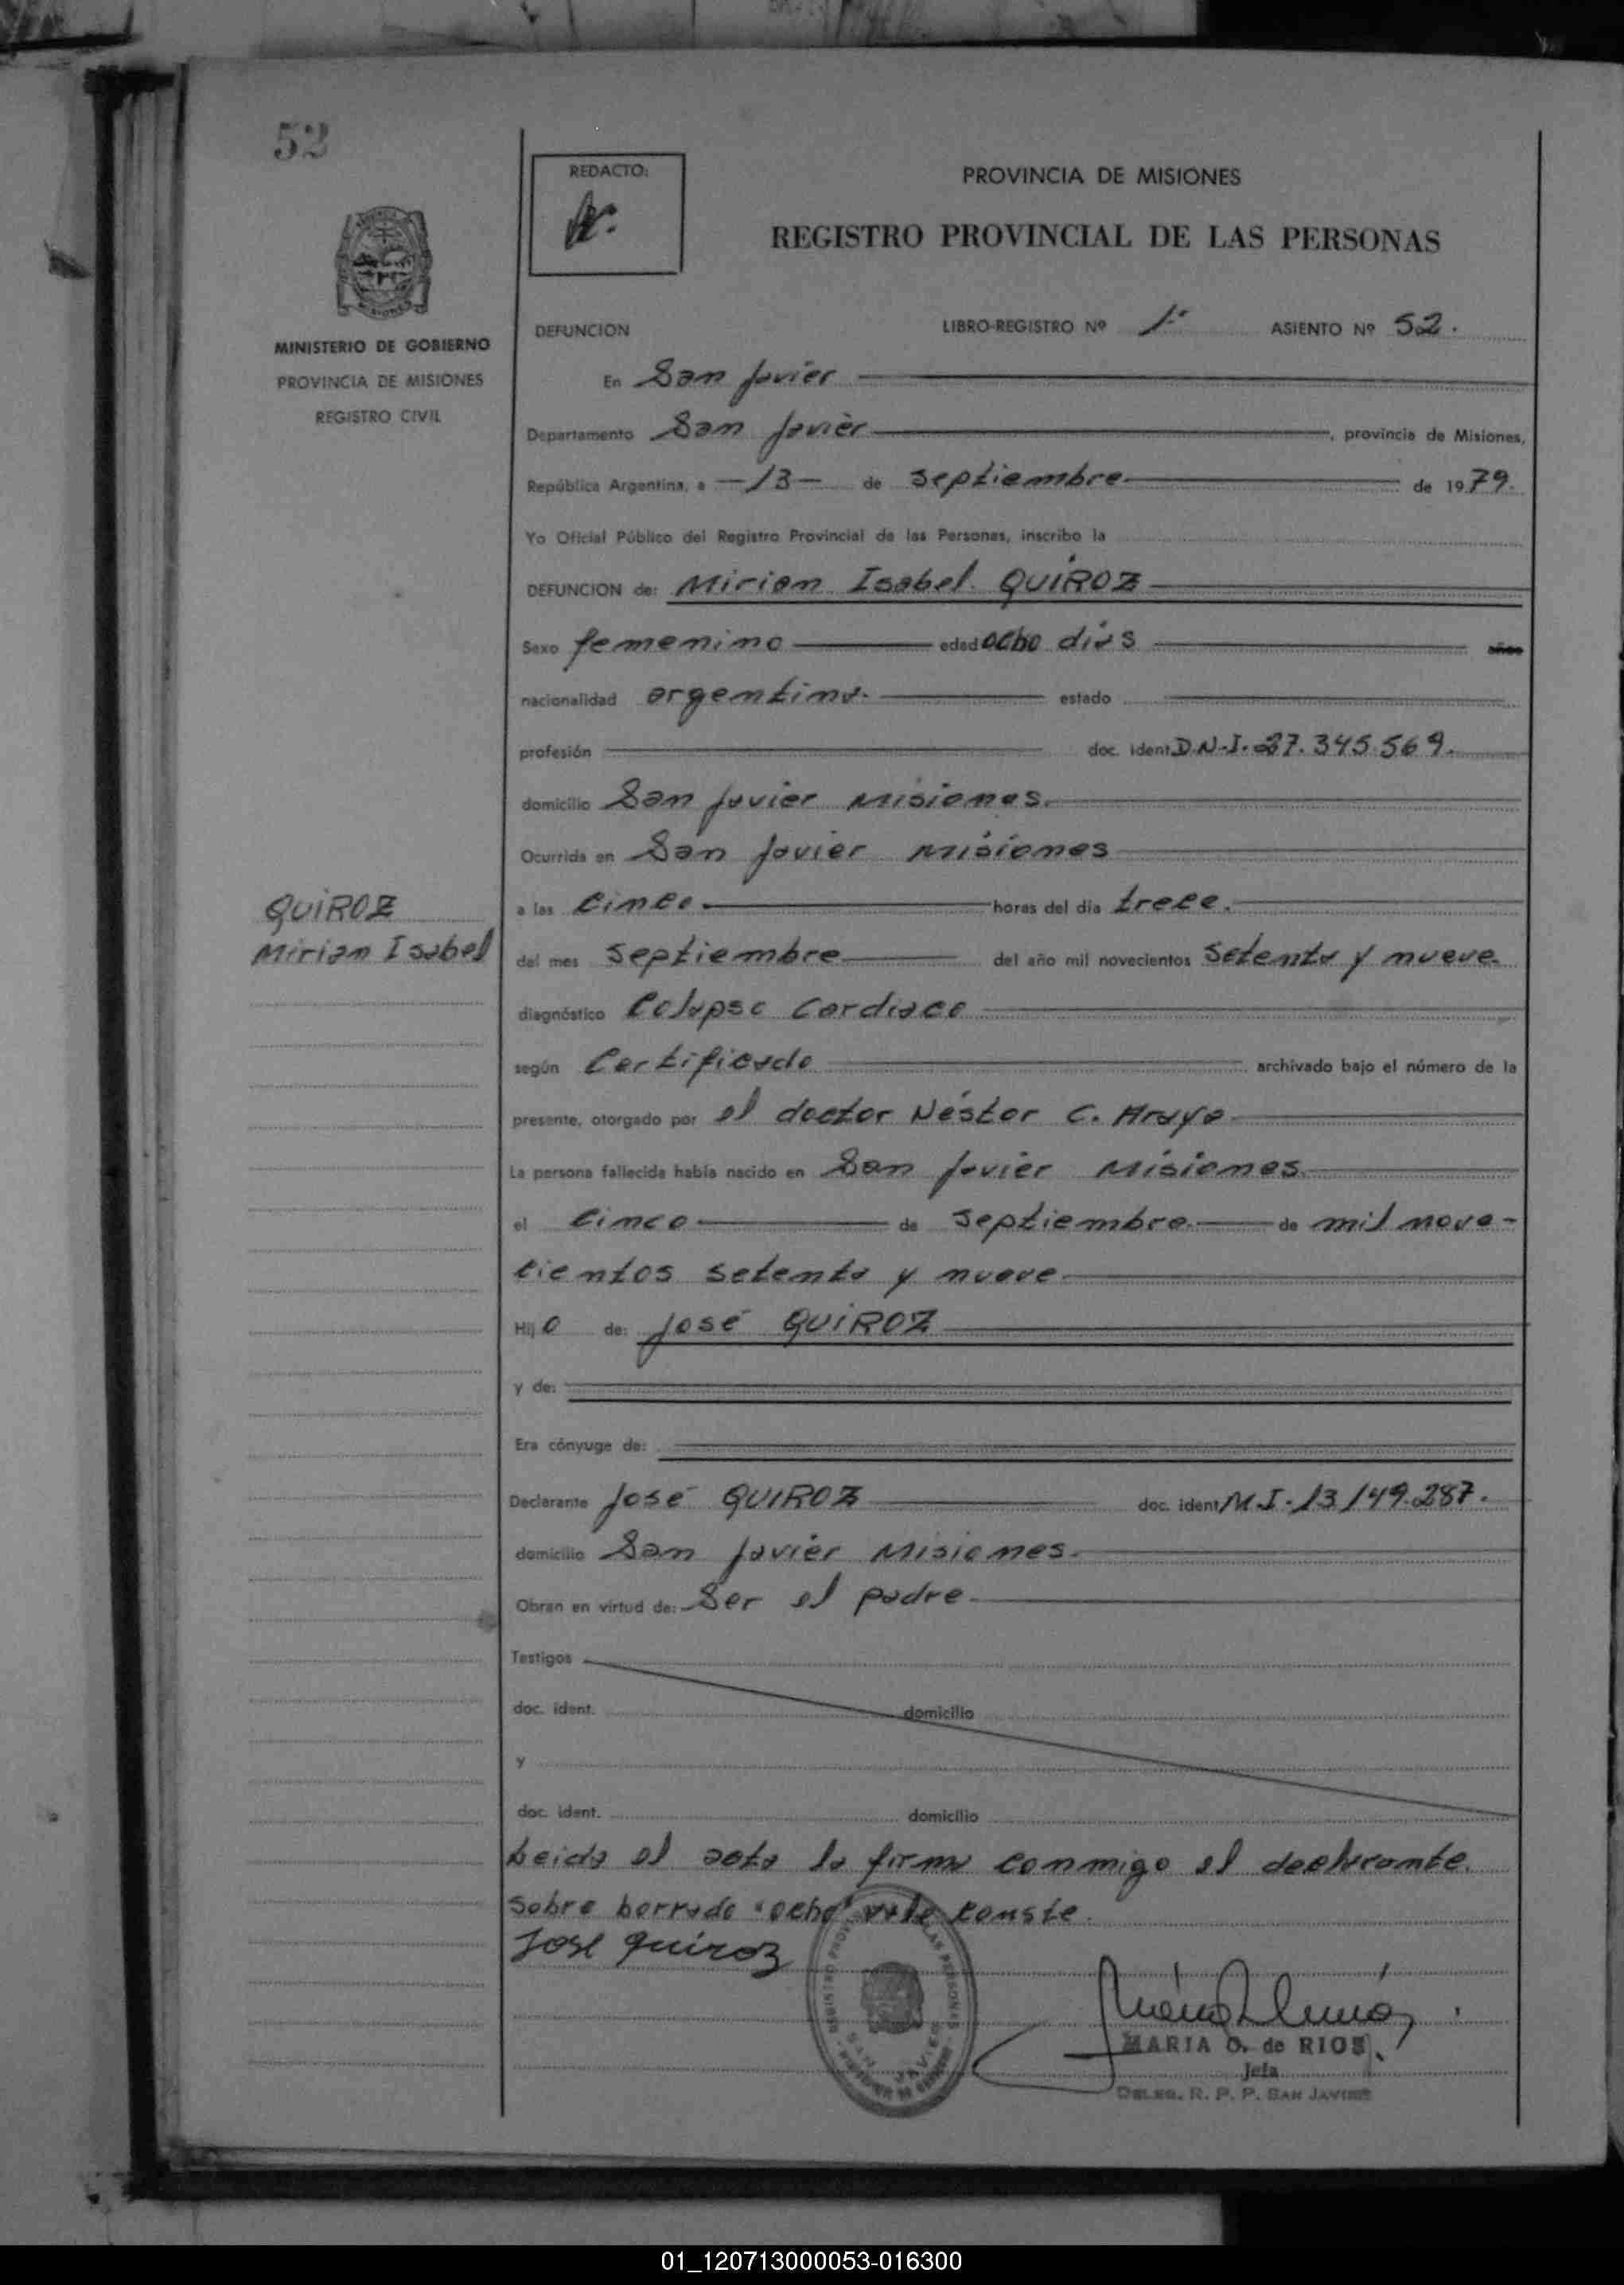 52
REDACTO:
PROVINCIA DE MISIONES
REGISTRO PROVINCIAL DE LAS PERSONAS
MINISTERIO DE GOBIERNO
PROVINCIA DE MISIONES
REGISTRO CIVIL
DEFUNCION LIBRO-REGISTRO Nº 1º ASIENTO Nº 52.
En San Javier
Departamento San Javier, provincia de Misiones,
República Argentina, a -13- de septiembre de 1979.
Yo Oficial Público del Registro Provincial de las Personas, inscribo la
DEFUNCION de: Mirian Isabel QUIROZ
Sexo femenino edad ocho días años
nacionalidad argentina. estado
profesión doc. ident. D.N.I. 27.345.569.
domicilio San Javier Misiones.
Ocurrida en San Javier Misiones
QUIROZ
Mirian Isabel
a las cinco horas del día trece.
del mes septiembre del año mil novecientos setenta y nueve.
diagnóstico Colapso Cardiaco
según Certificado archivado bajo el número de la
presente, otorgado por el doctor Néstor C. Araya
La persona fallecida había nacido en San Javier Misiones.
el cinco de septiembre. de mil nove-
cientos setenta y nueve.
Hij o de: José QUIROZ
y de:
Era cónyuge de:
Declarante José QUIROZ doc. ident. M.I. 13.149.287.
domicilio San Javier Misiones.
Obran en virtud de: Ser el padre.
Testigos
doc. ident. domicilio
y
doc. ident. domicilio
Leida el acta la firma conmigo el declarante.
Sobre borrado "ocho" vale conste.
José Quiroz
MARIA O. de RIOS
Jefa
DELEG. R. P. P. SAN JAVIER
01_120713000053-016300